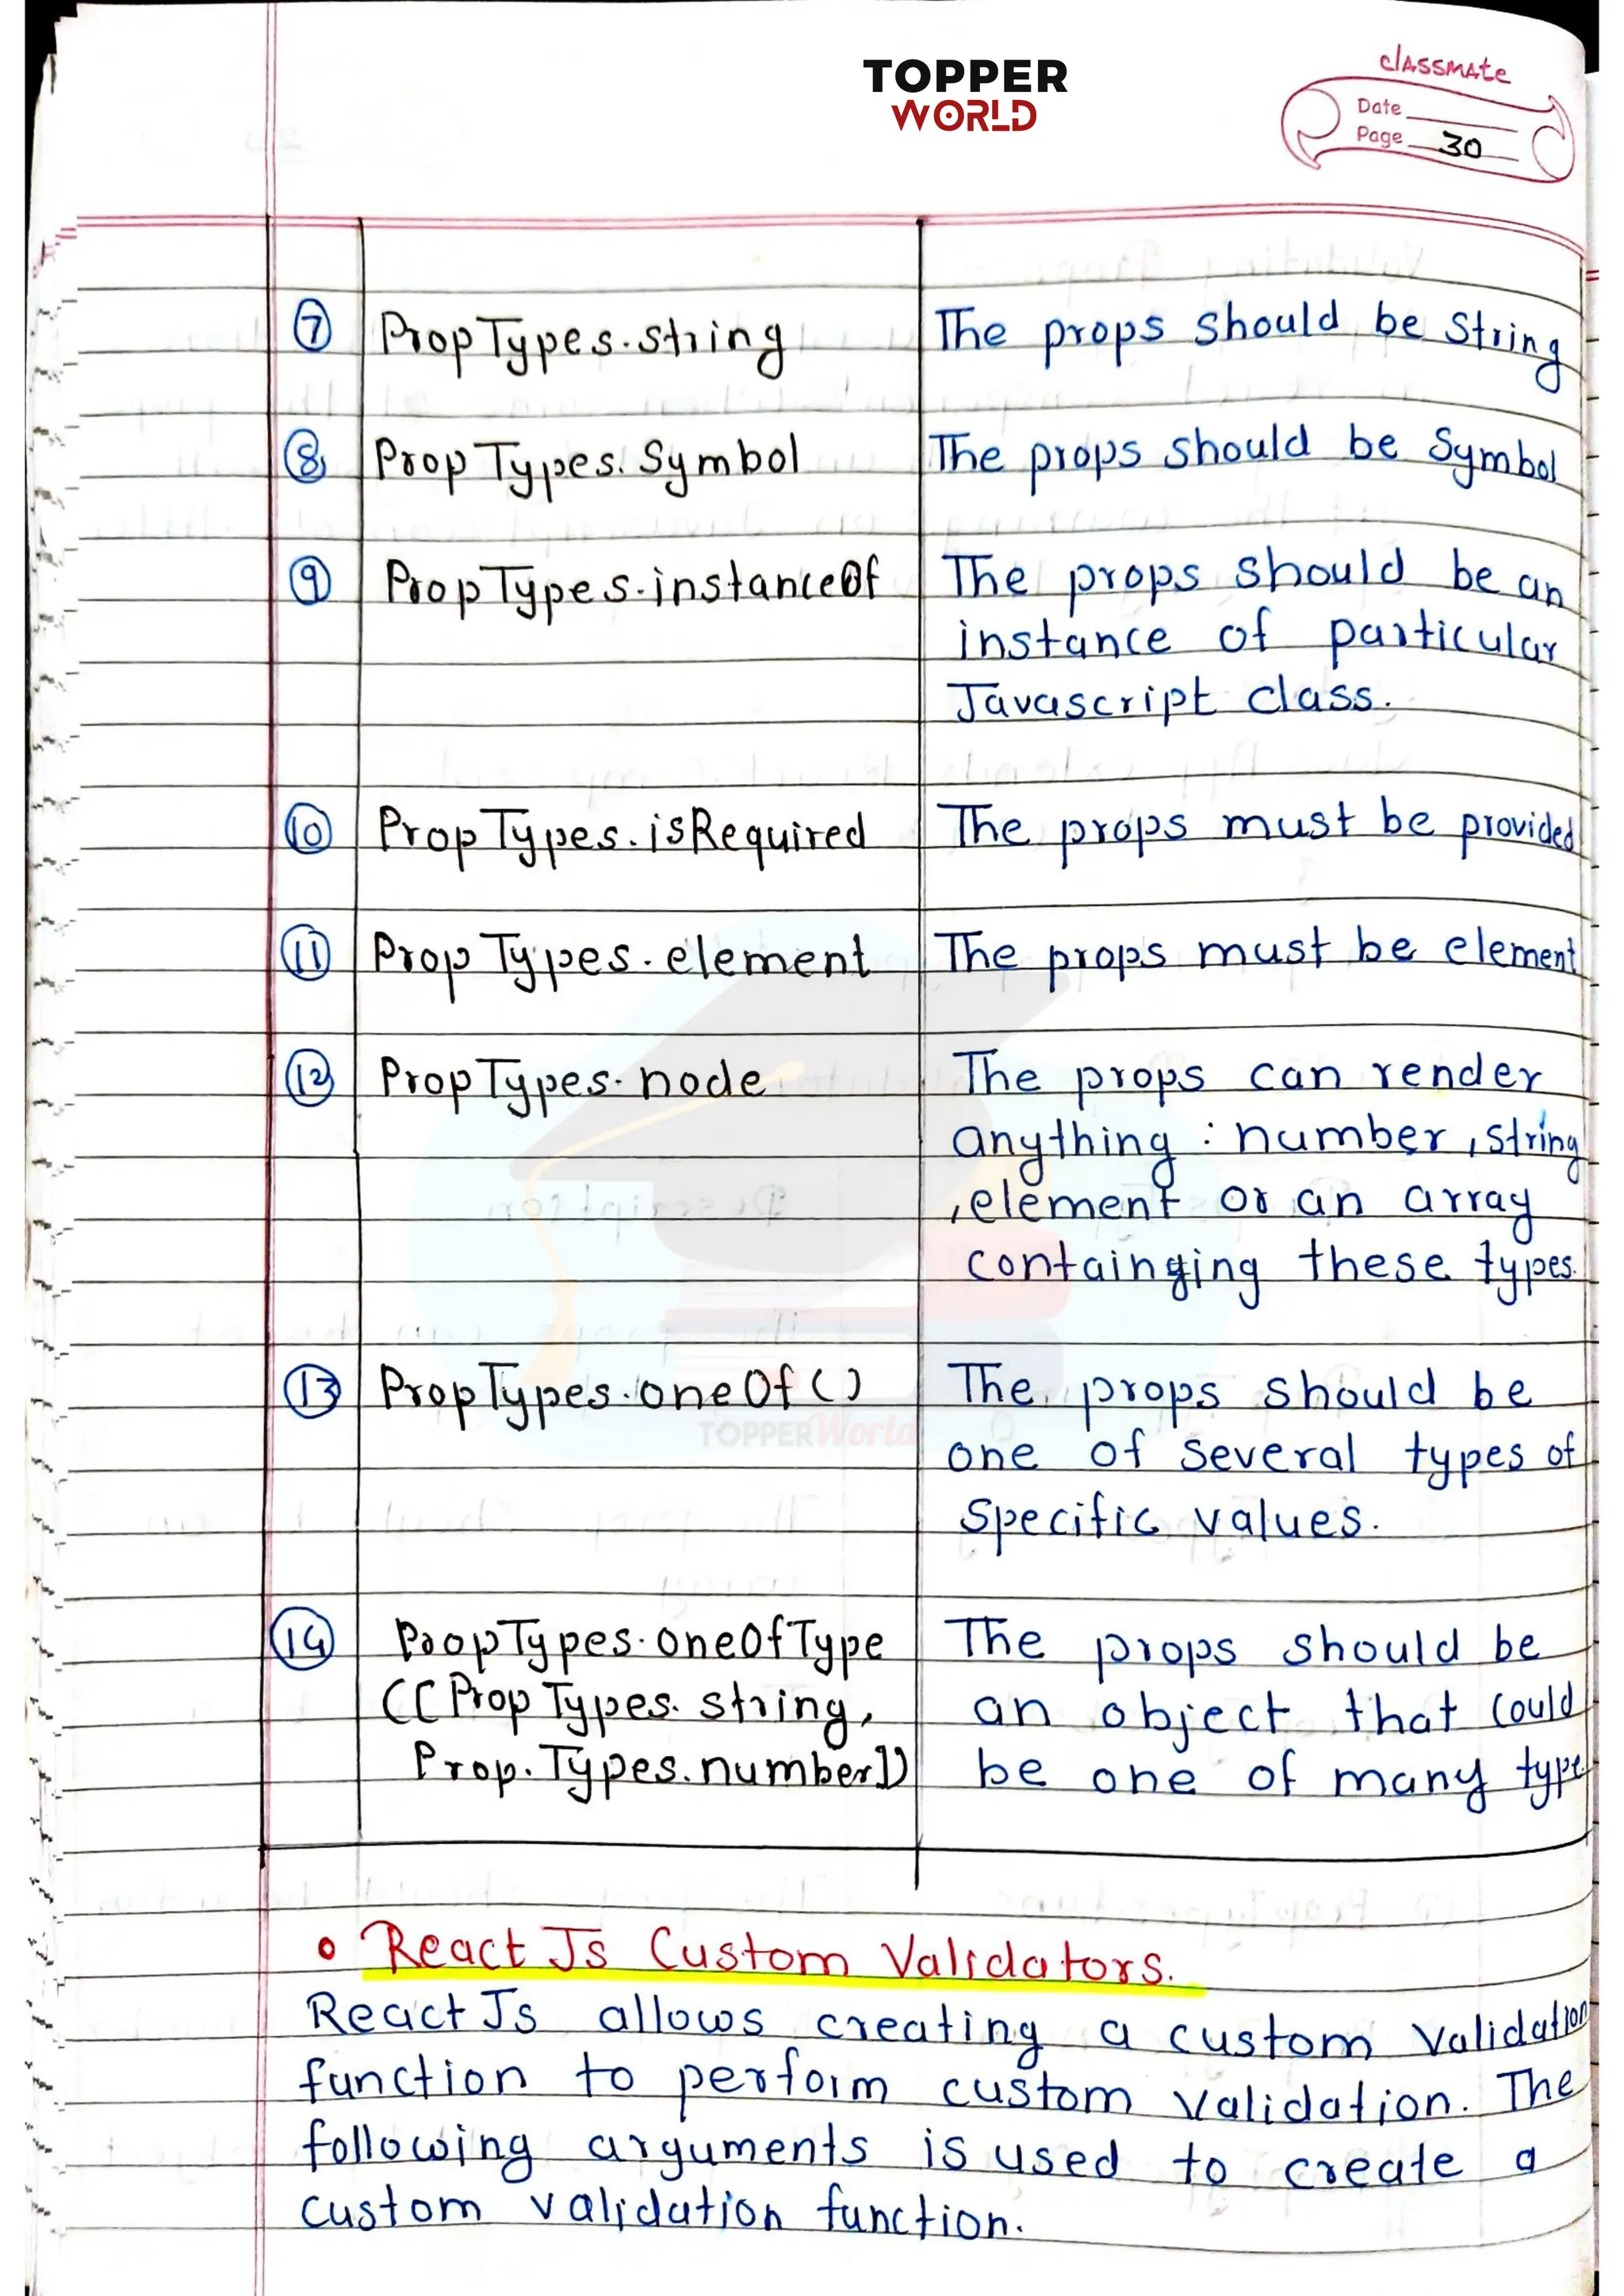 TOPPER
WORLD
classmate
Date
Page 30
7 PropTypes.string The props should be String
8 PropTypes.Symbol The props should be Symbol
9 PropTypes.instanceOf The props should be an
instance of particular
Javascript class.
10 PropTypes.isRequired The props must be provided
11 PropTypes.element The props must be element
12 PropTypes.node The props can render
anything : number, string
, element or an array
containging these types.
13 PropTypes.oneOf() The props should be
one of several types of
specific values.
TOPPERWorld
14 PropTypes.oneOfType The props should be
([PropTypes.string, an object that could
Prop.Types.number]) be one of many type
• React Js Custom Validators.
React Js allows creating a custom validation
function to perform custom validation. The
following arguments is used to create a
custom validation function.